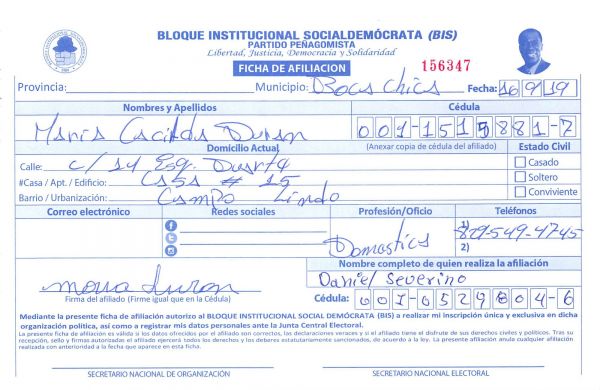 BLOQUE INSTITUCIONAL SOCIALDEMÓCRATA (BIS)
PARTIDO PEÑAGOMISTA
Libertad, Justicia, Democracia y Solidaridad
FICHA DE AFILIACION
156347
Provincia: Municipio: Boca Chica Fecha: 16/9/19
Nombres y Apellidos Cédula
Maria Cacilda Duran 001-1515881-7
Domicilio Actual (Anexar copia de cédula del afiliado) Estado Civil
Calle: c/ 14 Esq. Duarte Casado
#Casa / Apt. / Edificio: Casa # 15 Soltero
Barrio / Urbanización: Campo Lindo Conviviente
Correo electrónico Redes sociales Profesión/Oficio Teléfonos
Domestica 1) 829-549-4745
2)
Nombre completo de quien realiza la afiliación
maria duran Daniel Severino
Firma del afiliado (Firme igual que en la Cédula) Cédula: 001-0529804-6
Mediante la presente ficha de afiliación autorizo al BLOQUE INSTITUCIONAL SOCIAL DEMÓCRATA (BIS) a realizar mi inscripción única y exclusiva en dicha
organización política, así como a registrar mis datos personales ante la Junta Central Electoral.
La presente ficha de afiliación es válida si los datos ofrecidos por el afiliado son correctos, las declaraciones veraces y si el afiliado tiene el disfrute de sus derechos civiles y políticos. Tras su
recepción, sello y firmas autorizadas el afiliado ejercerá todos los derechos y los deberes estatutariamente sancionados, de acuerdo a la ley. La presente afiliación anula cualquier afiliación
realizada con anterioridad a la fecha que aparece en esta ficha.
SECRETARIO NACIONAL DE ORGANIZACIÓN SECRETARIO NACIONAL ELECTORAL